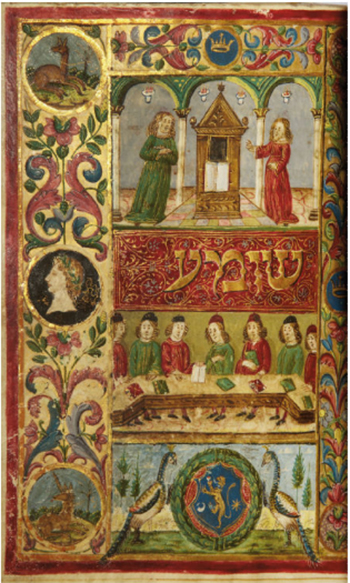 שומע